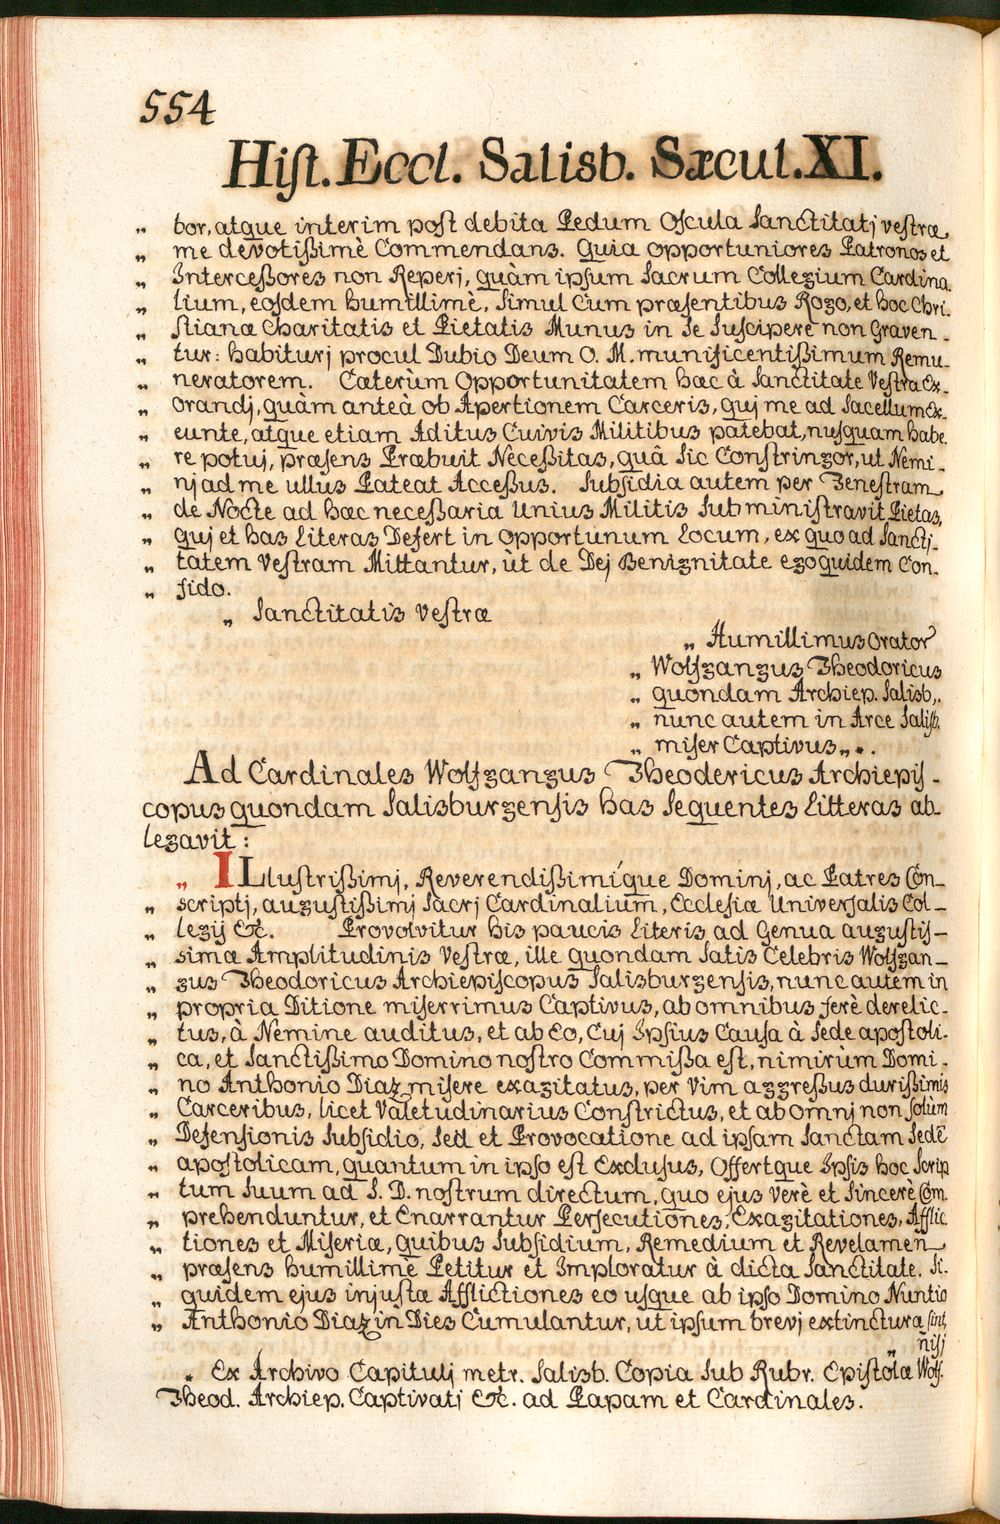 554
Hist. Eccl. Salisb. Sæcul. XI.
„ bor, atque interim post debita Pedum Oscula Sanctitatj vestræ
„ me devotißimè Commendans. Quia opportuniores Patronos et
„ Interceßores non Reperj, quàm ipsum Sacrum Collegium Cardina
„ lium, eosdem humillimè, simul Cum præsentibus Rogo, et hoc Chri-
„ stianæ Charitatis et Pietatis Munus in se suscipere non Graven-
„ tur: habiturj procul Dubio Deum O. M. munificentißimum Remu-
„ neratorem. Cæterùm Opportunitatem hæc à Sanctitate Vestra Ex-
„ orandj, quàm anteà ob Apertionem Carceris, quj me ad Sacellum Ex-
„ eunte, atque etiam Aditus Cuivis Militibus patebat, nusquam habe
„ re potuj, præsens Præbuit Neceßitas, quâ sic Constringor, ut Nemi-
„ nj ad me ullus Pateat Acceßus. Subsidia autem per Fenestram
„ de Nocte ad hæc neceßaria Unius Militis Subministravit Pietas,
„ quj et has Literas Defert in opportunum Locum, ex quo ad Sanctj-
„ tatem Vestram Mittantur, ùt de Dej Benignitate ego quidem Con-
„ fido.
„ Sanctitatis Vestræ
„ Humillimus Orator
„ Wolfgangus Theodoricus
„ quondam Archiep. Salisb,.
„ nunc autem in Arce Salisb.
„ miser Captivus„ *.
Ad Cardinales Wolfgangus Theodericus Archiepis-
copus quondam Salisburgensis has sequentes Litteras ab-
legavit:
„ ILlustrißimj, Reverendißimíque Dominj, ac Patres Con-
„ scriptj, augustißimj Sacrj Cardinalium, Ecclesiæ Universalis Col-
„ legij &c. Provolvitur his paucis Literis ad Genua augustis-
„ simæ Amplitudinis Vestræ, ille quondam Satis Celebris Wolfgan-
„ gus Theodoricus Archiepiscopus Salisburgensis, nunc autem in
„ propria Ditione miserrimus Captivus, ab omnibus ferè derelic-
„ tus, à Nemine auditus, et ab Eo, Cuj Ipsius Causa à Sede apostoli-
„ ca, et Sanctißimo Domino nostro Commißa est, nimirùm Domi-
„ no Anthonio Diaz misere exagitatus, per Vim aggreßus durißimis
„ Carceribus, licet Valetudinarius Constrictus, et ab omnj non solùm
„ Defensionis Subsidio, sed et Provocatione ad ipsam Sanctam Sedē
„ apostolicam, quantum in ipso est Exclusus, Offertque Ipsis hoc Scrip
„ tum suum ad S. D. nostrum directum, quo ejus Verè et Sincerè Com
„ prehenduntur, et Enarrantur Persecutiones, Exagitationes, Afflic
„ tiones et Miseriæ, quibus Subsidium, Remedium et Revelamen
„ præsens humillimè Petitur et Imploratur à dicta Sanctitate. Si-
„ quidem ejus injustæ Afflictiones eo usque ab ipso Domino Nuntio
„ Anthonio Diaz in Dies Cumulantur, ut ipsum brevj extinctura sint,
„ nisj
* Ex Archivo Capitulj metr. Salisb. Copia sub Rubr. Epistolæ Wolf.
Theod. Archiep. Captivatj &c. ad Papam et Cardinales.